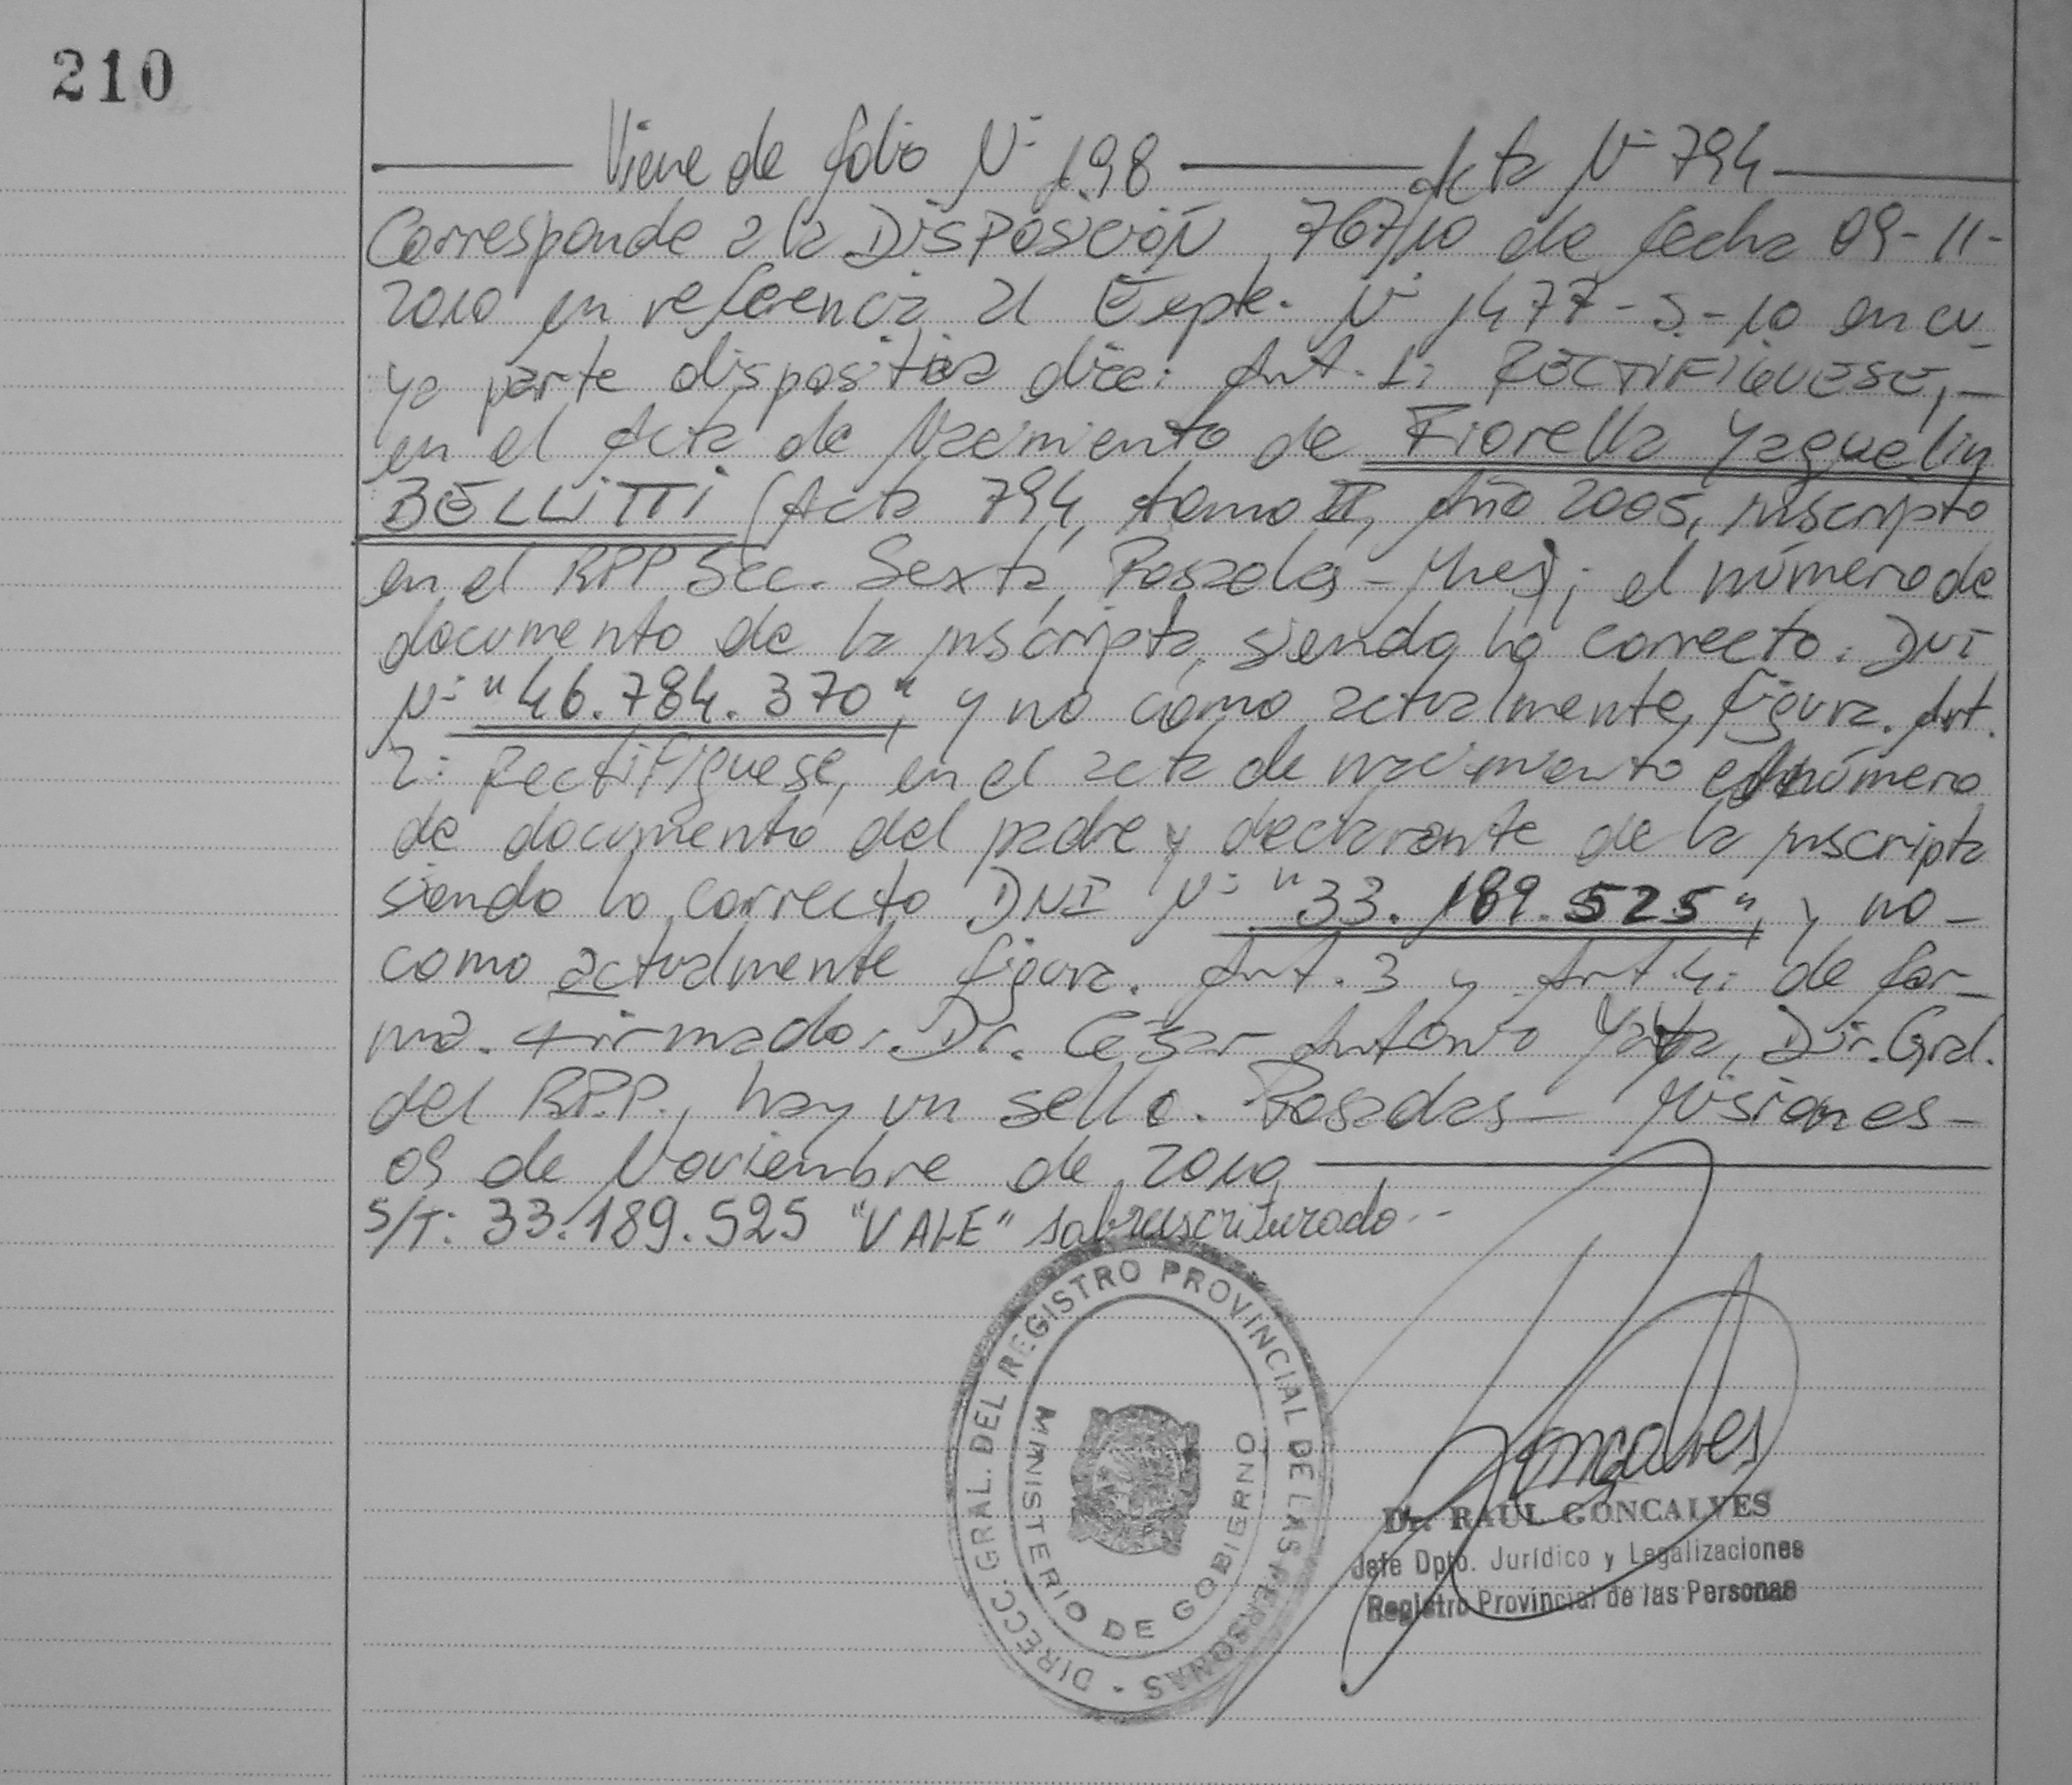 210
Viene de folio Nº 198 Acta Nº 794
Corresponde a la DISPOSICIÓN 767/10 de fecha 09-11-
2010 en referencia al Expte. Nº 1477-S-10 en cu-
ya parte dispositiva dice: Art. 1: RECTIFIQUESE,-
en el Acta de Nacimiento de Fiorella Yaquelin
BELLITTI (Acta 794, tomo II, Año 2005, inscripto
en el RPP Sec. Sexta, Posadas - Mnes); el número de
documento de la inscripta, siendo lo correcto: DNI
Nº "46.784.370", y no como actualmente figura. Art.
2: Rectifiquese, en el acta de nacimiento el número
de documento del padre y declarante de la inscripta
siendo lo correcto DNI Nº "33.189.525", y no-
como actualmente figura. Art. 3 y Art. 4: de for-
ma. Firmado: Dr. Cesar Antonio Dir. Gral.
del RPP., hay un sello. Posadas- Misiones-
09 de Noviembre de 2010
S/T: 33.189.525 "VALE" sobreescriturado--
DIRECC. GRAL. DEL REGISTRO PROVINCIAL DE LAS PERSONAS -
MINISTERIO DE GOBIERNO
Gonçalves
Dr. RAUL GONCALVES
Jefe Dpto. Jurídico y Legalizaciones
Registro Provincial de las Personas